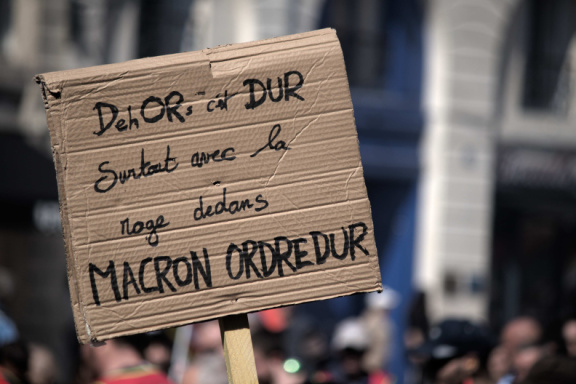 DehORs c'est DUR
Surtout avec la
rage dedans
MACRON ORDREDUR